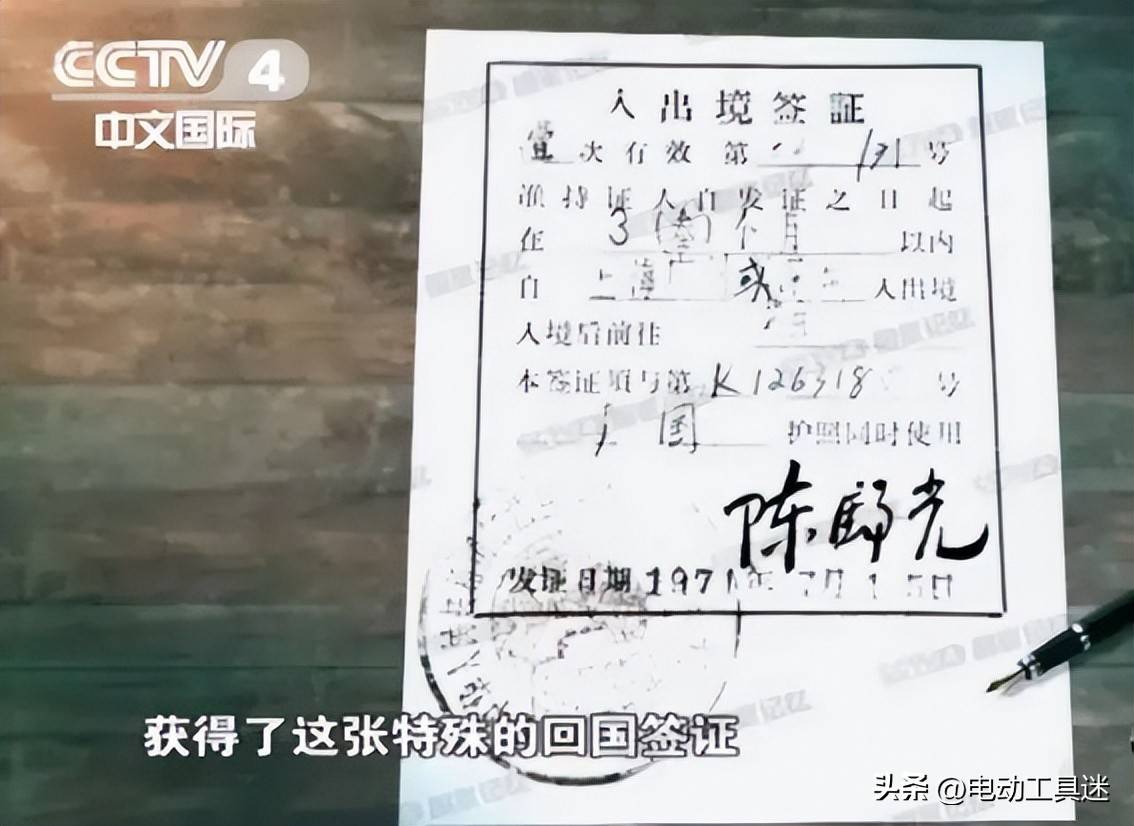 CCTV 4
中文国际
入出境签証
壹次有效第 131号
准持证人自发证之日起
在 3(叁)个月 以内
自 上海 或 入出境
入境后前往
本签证须与第 K126318 号
国 护照同时使用
发证日期 1971年7月15日
获得了这张特殊的回国签证
头条 @电动工具迷